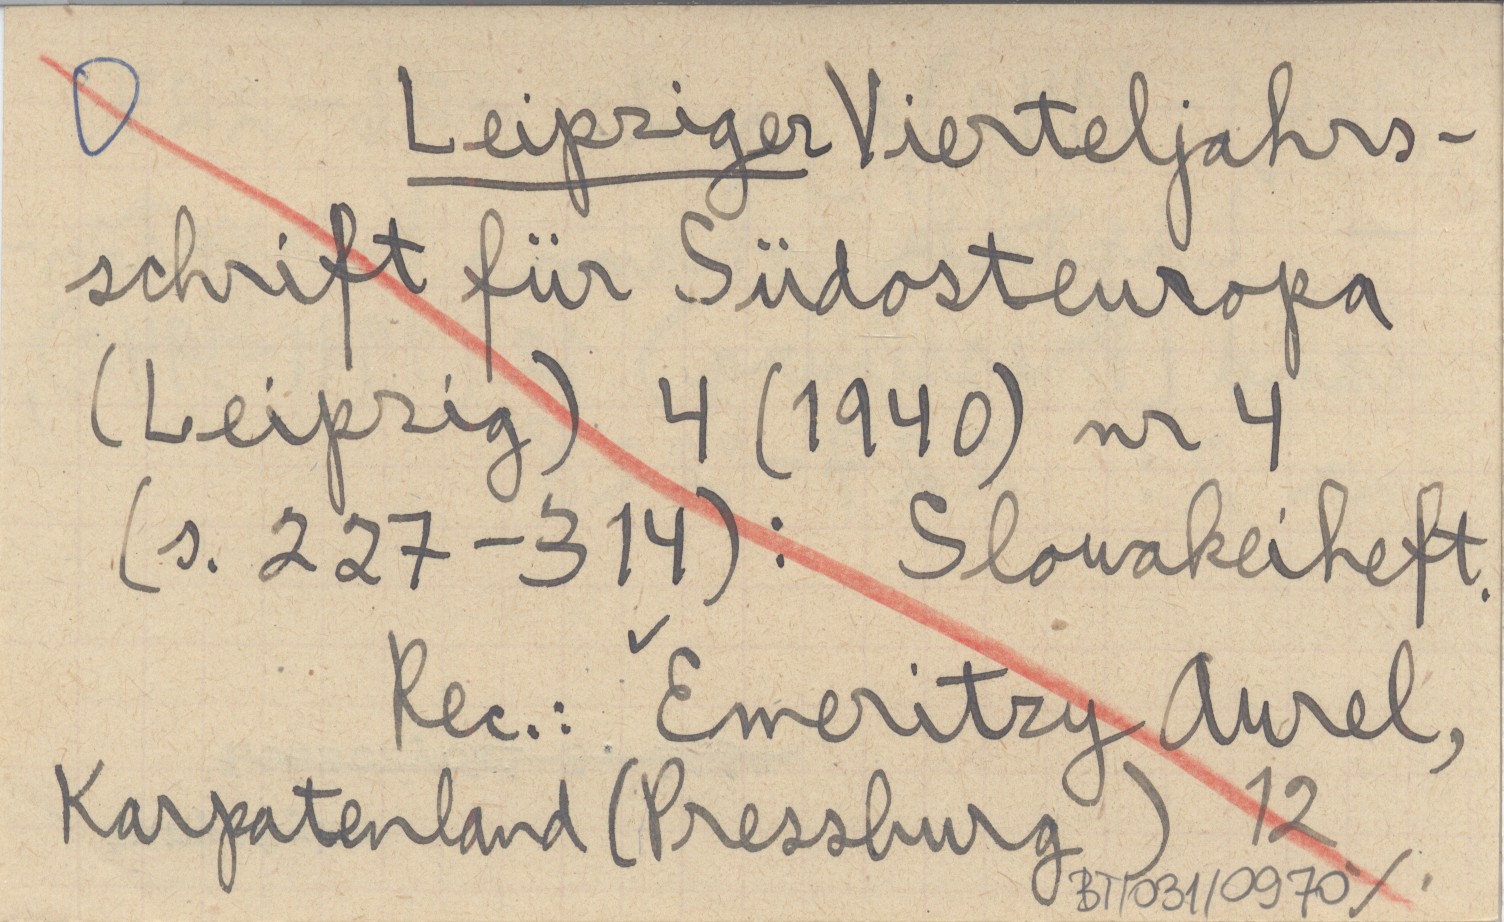 Leipziger Vierteljahrs-
schrift für Südosteuropa
(Leipzig) 4 (1940) nr 4
(s. 227-314): Slowakeiheft.
Rec.: Emeritzy Aurel,
Karpatenland (Pressburg) 12
BT/031/0970 /.